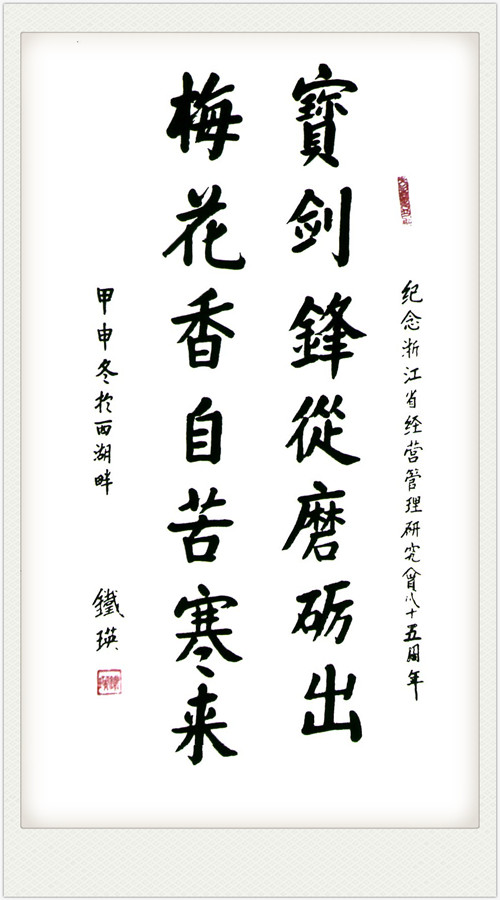 纪念浙江省经营管理研究會八十五周年
寶剑鋒從磨砺出
梅花香自苦寒来
甲申冬於西湖畔
鐵瑛